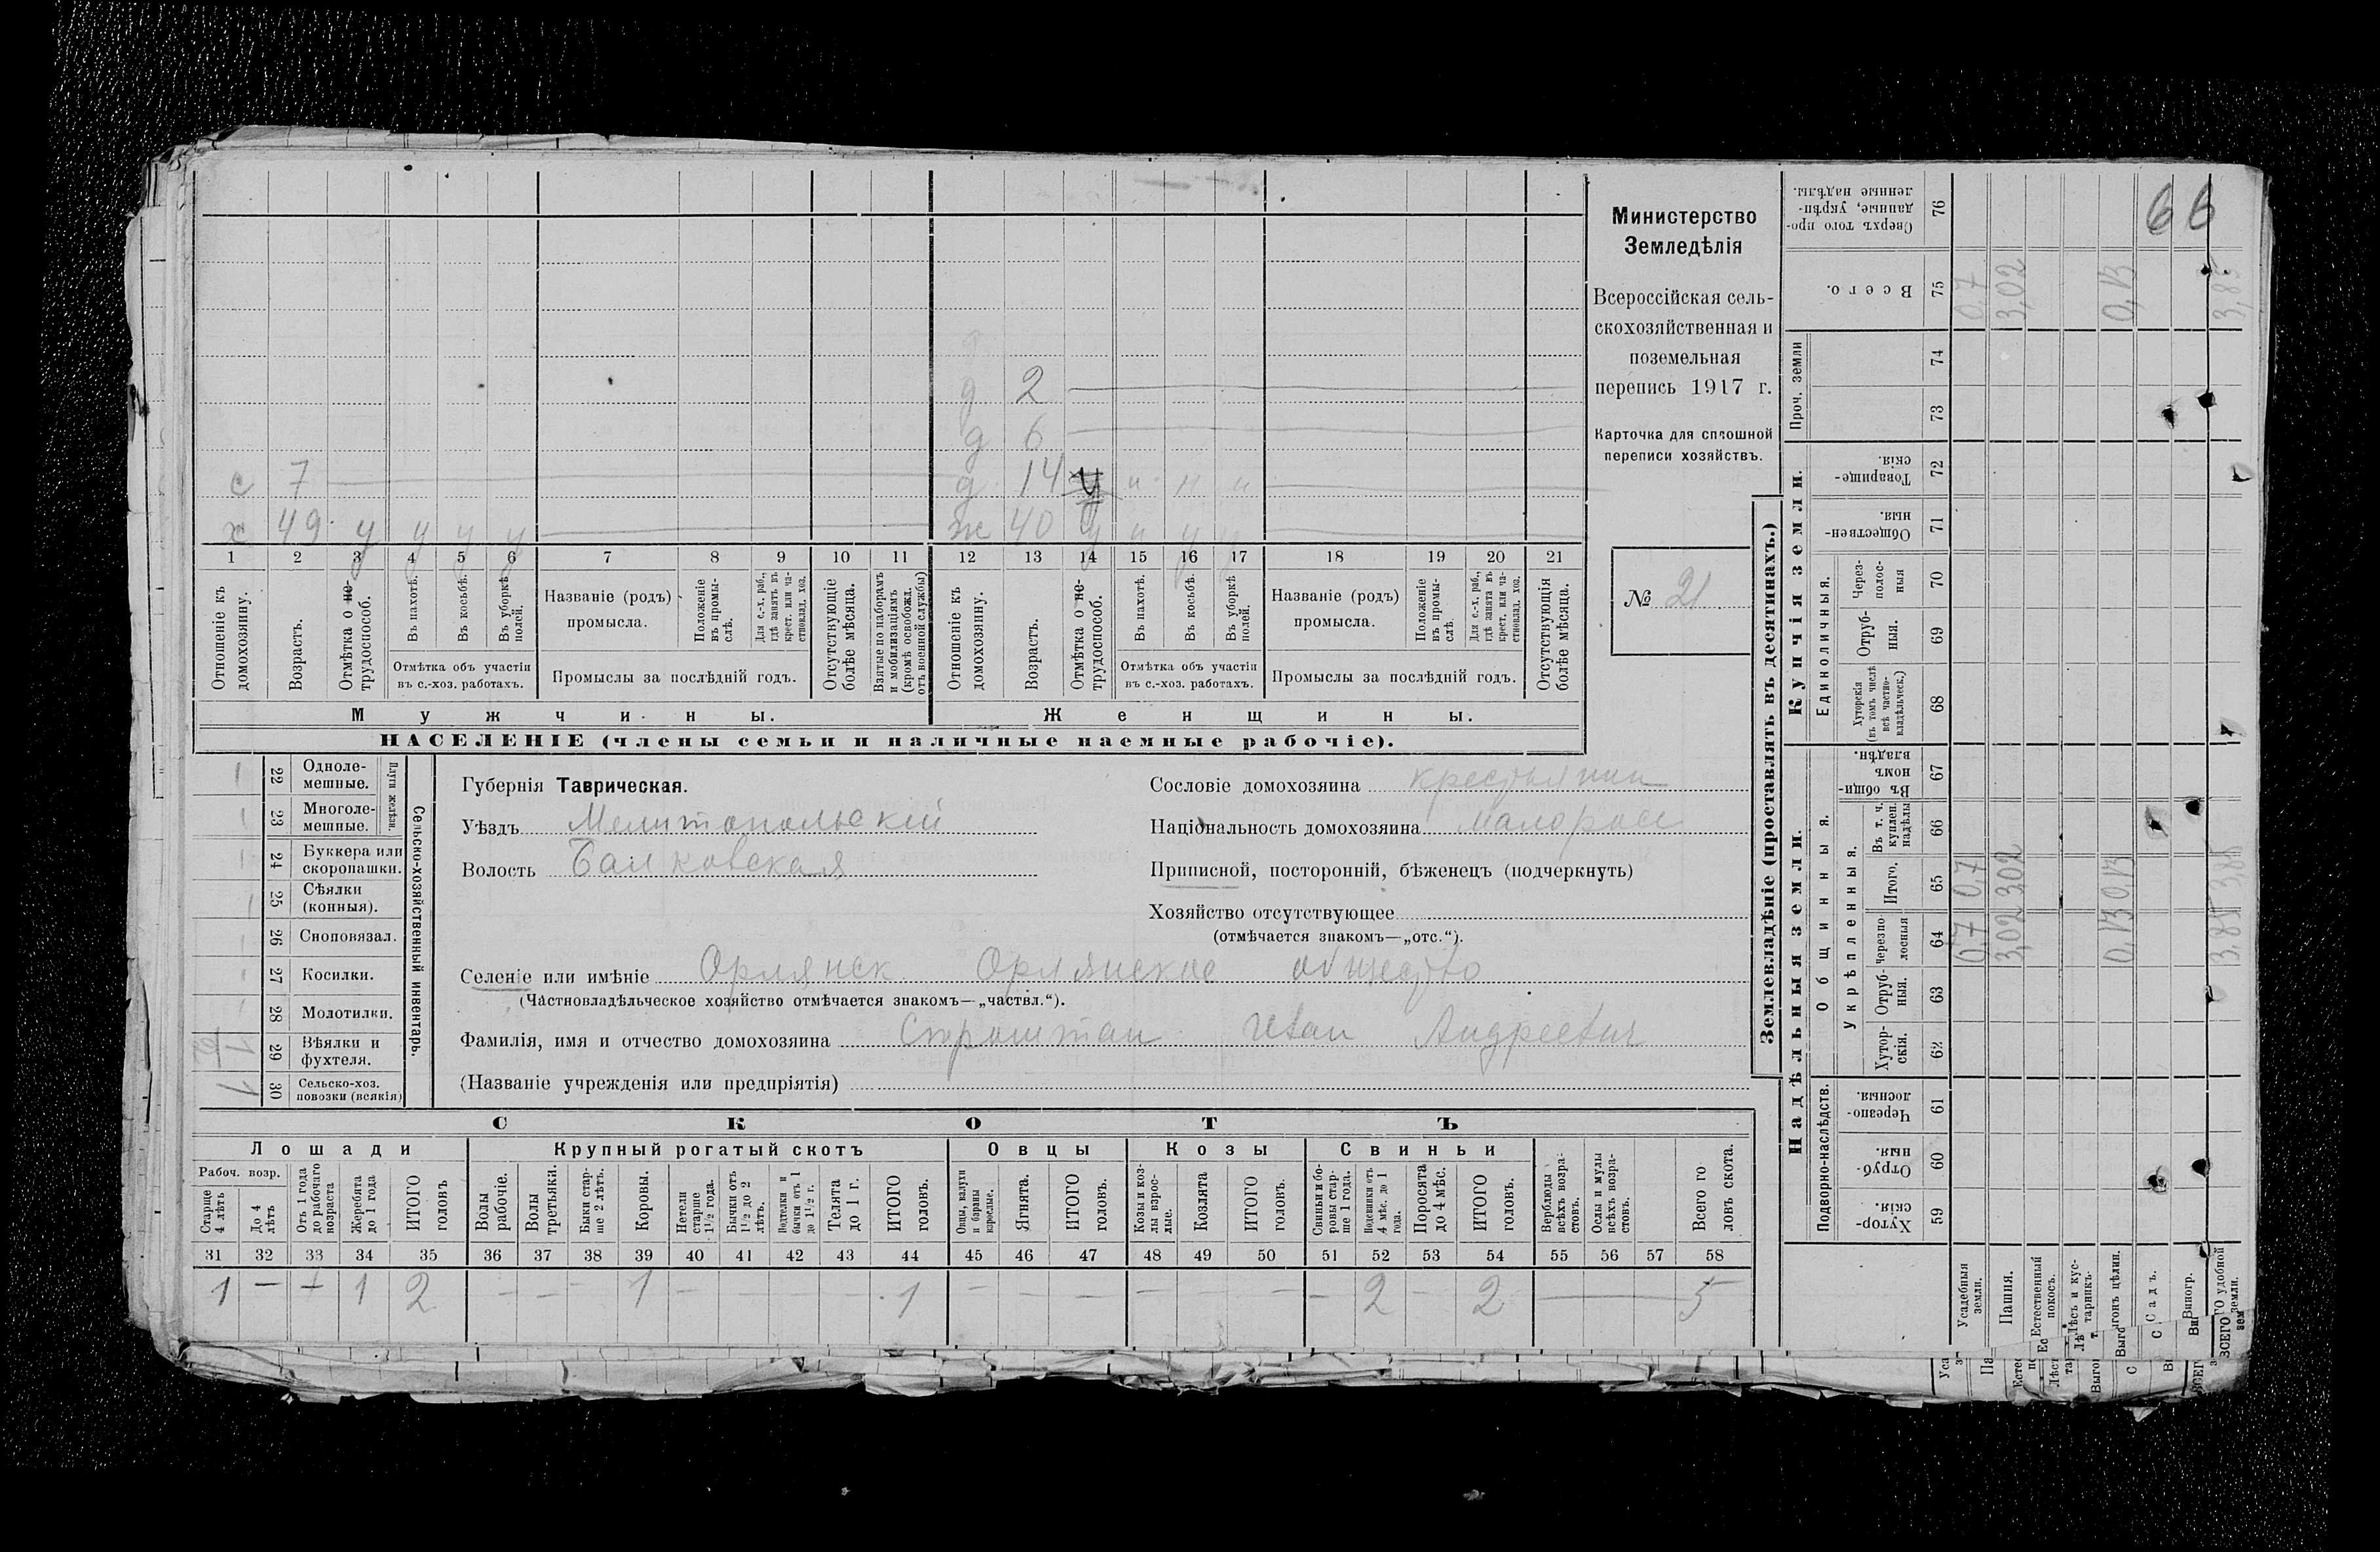 Министерство
Земледѣлія
Всероссійская сель-
скохозяйственная и
поземельная
перепись 1917 г.
Карточка для сплошной
переписи хозяйствъ.
№ 21.
66
д 2
д 6
с 7 д 14 у и н и
х 49 у у у у ж 40 у и у у
1 2 3 4 5 6 7 8 9 10 11 12 13 14 15 16 17 18 19 20 21
Отношеніе къ домохозяину.
Возрастъ.
Отмѣтка о не-трудоспособ.
Въ пахотѣ.
Въ косьбѣ.
Въ уборкѣ полей.
Отмѣтка объ участіи
въ с.-хоз. работахъ.
Названіе (родъ)
промысла.
Положеніе въ промы-слѣ.
Для с.-х. раб., гдѣ занятъ въ крест. или ча-стновлад. хоз.
Промыслы за послѣдній годъ.
Отсутствующіе болѣе мѣсяца.
Взятые по наборамъ и мобилизаціямъ (кромѣ освобожл. отъ военной службы)
Отношеніе къ домохозяину.
Возрастъ.
Отмѣтка о не-трудоспособ.
Въ пахотѣ.
Въ косьбѣ.
Въ уборкѣ полей.
Отмѣтка объ участіи
въ с.-хоз. работахъ.
Названіе (родъ)
промысла.
Положеніе въ промы-слѣ.
Для с.-х. раб., гдѣ занята въ крест. или ча-стновлад. хоз.
Промыслы за послѣдній годъ.
Отсутствующія болѣе мѣсяца.
Мужчины. Женщины.
НАСЕЛЕНІЕ (члены семьи и наличные наемные рабочіе).
Сельско-хозяйственный инвентарь.
Плуги желѣзн.
22 Одноле-мешные.
23 Многоле-мешные.
24 Буккера или скоропашки.
25 Сѣялки (конныя).
26 Сноповязал.
27 Косилки.
28 Молотилки.
29 Вѣялки и фухтеля. 1/2
30 Сельско-хоз. повозки (всякія) 1
Губернія Таврическая.
Уѣздъ Мелитопольскій
Волость Балковская
Сословіе домохозяина крестьянин
Національность домохозяина малоросс
Приписной, посторонній, бѣженецъ (подчеркнуть)
Хозяйство отсутствующее
(отмѣчается знакомъ—„отс.“).
Селеніе или имѣніе Орлянск Орлянское общество
(Частновладѣльческое хозяйство отмѣчается знакомъ—„частвл.“).
Фамилія, имя и отчество домохозяина Иван Андреевич
(Названіе учрежденія или предпріятія)
СКОТЪ
Лошади Крупный рогатый скотъ Овцы Козы Свиньи
Рабоч. возр.
Старше 4 лѣтъ
До 4 лѣтъ
Отъ 1 года до рабочаго возраста
Жеребята до 1 года
ИТОГО головъ
Волы рабочіе.
Волы третьяки.
Быки стар-ше 2 лѣтъ.
Коровы.
Нетели старше 1½ года.
Бычки отъ 1½ до 2 лѣтъ.
Подтелки и бычки отъ 1 до 1½ г.
Телята до 1 г.
ИТОГО головъ.
Овцы, валухи и бараны взрослые.
Ягнята.
ИТОГО головъ.
Козы и коз-лы взрос-лые.
Козлята
ИТОГО головъ.
Свиньи и бо-ровы стар-ше 1 года.
Подсвинки отъ 4 мѣс. до 1 года.
Поросята до 4 мѣс.
ИТОГО головъ.
Верблюды всѣхъ возра-стовъ.
Ослы и мулы всѣхъ возра-стовъ.
Всего го ловъ скота.
31 32 33 34 35 36 37 38 39 40 41 42 43 44 45 46 47 48 49 50 51 52 53 54 55 56 57 58
1 — — 1 2 — — — 1 — — — — 1 — — — — — — — 2 — 2 — 5
Землевладѣніе (проставлять въ десятинахъ.)
Надѣльныя земли. Купчія земли. Проч. земли
Подворно-наслѣдств.
Общинныя.
Укрѣпленныя.
Единоличныя.
Хутор-скія. 59
Отруб-ныя. 60
Черезпо-лосныя. 61
Хутор-скія. 62
Отруб-ныя. 63
черезпо лосныя 64
Итого. 65
Въ т. ч. куплен. надѣлы 66
Въ общин номъ владѣн. 67
Хуторскія (въ томъ числѣ всѣ частно-владѣльческ.) 68
Отруб-ныя. 69
Через-полос-ныя 70
Обществен-ныя. 71
Товарище-скія. 72
73
74
Всего. 75
Сверхъ того про-данные, укрѣп-ленные надѣлы. 76
Усадебныя земли. 0.7 0,7 0.7
Пашня. 3,02 3,02 3,02
Естественный покосъ.
Лѣсъ и кус-тарникъ.
Выгонъ цѣлин. 0,13 0,13 0,13
Садъ.
Виногр.
ВСЕГО удобной земли. 3.85 3,85 3,85